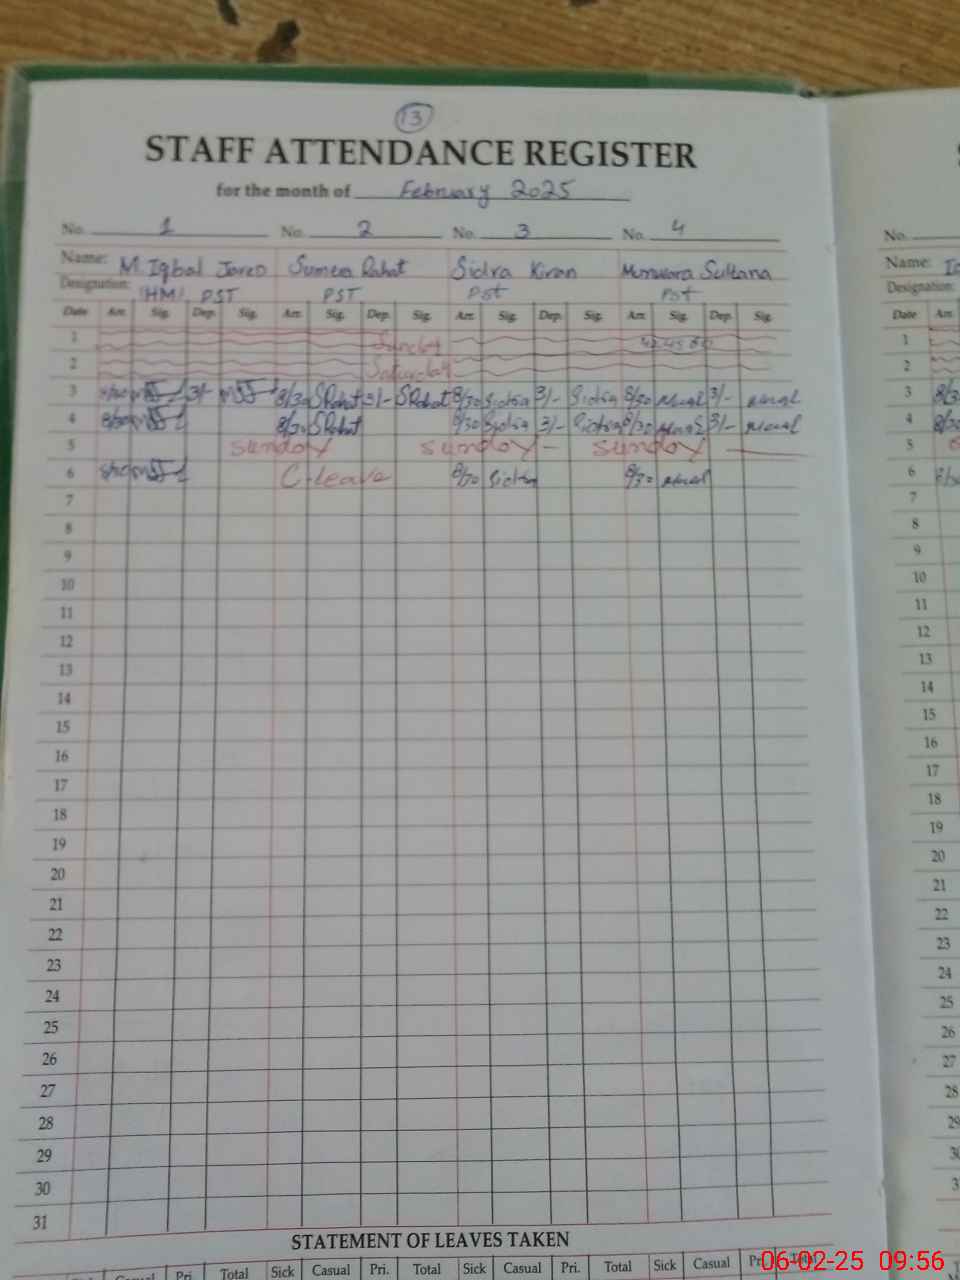 13
STAFF ATTENDANCE REGISTER
for the month of February 2025
No. 1 No. 2 No. 3 No. 4
Name: M. Iqbal Javed Sumera Rahat Sidra Kiran Munwara Sultana
Designation: (HM) PST PST Pst Pst
Date Arr. Sig. Dep. Sig. Arr. Sig. Dep. Sig. Arr. Sig. Dep. Sig. Arr. Sig. Dep. Sig.
1 Sunday
2 Saturday
3 3/- 8/30 SRahat 3/- SRahat 8/30 Sidra 3/- Sidra 8/30 3/-
4 8/30 8/30 SRahat 8/30 Sidra 3/- Sidra 8/30 3/-
5 sunday sunday - sunday
6 C-leave 8/30 Sidra 8/30
7
8
9
10
11
12
13
14
15
16
17
18
19
20
21
22
23
24
25
26
27
28
29
30
31
STATEMENT OF LEAVES TAKEN
Casual Pri. Total Sick Casual Pri. Total Sick Casual Pri. Total Sick Casual Pri. Total
No.
Name:
Designation:
Date Arr.
1
2
3 8/30
4 8/30
5
6
7
8
9
10
11
12
13
14
15
16
17
18
19
20
21
22
23
24
25
26
27
28
29
30
06-02-25 09:56